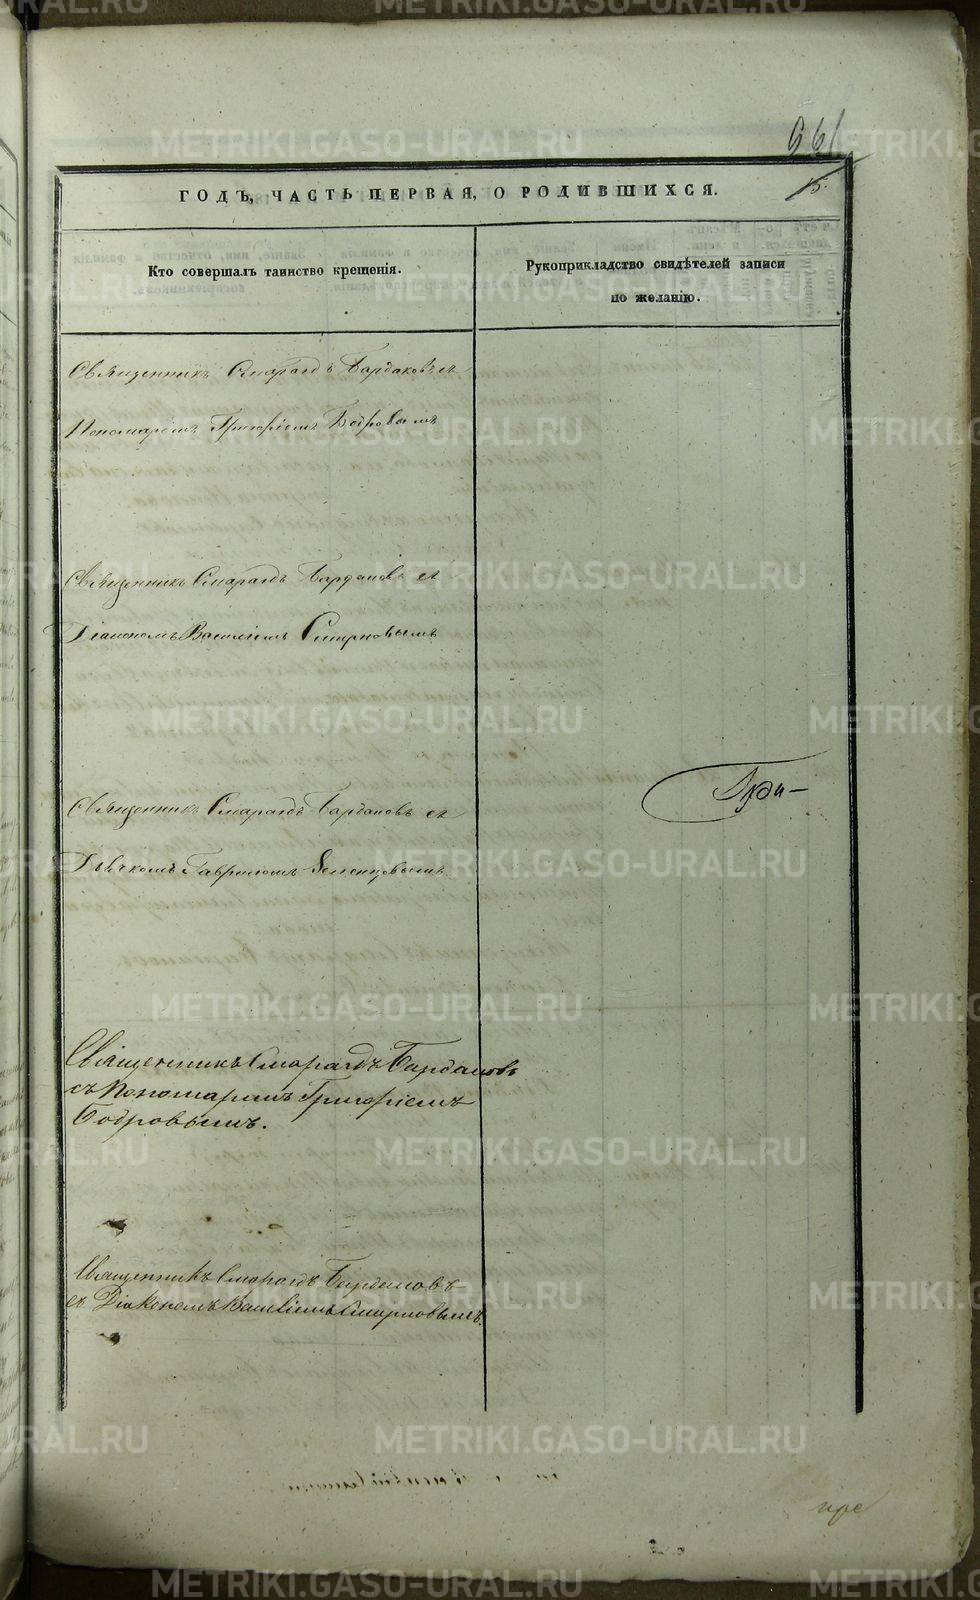 661
15.
ГОДЪ, ЧАСТЬ ПЕРВАЯ, О РОДИВШИХСЯ.
Кто совершалъ таинство крещенія.
Рукоприкладство свидѣтелей записи
по желанію.
Священникъ Смарагдъ Бардаковъ съ
Пономаремъ Григоріемъ Бобровымъ
Священникъ Смарагдъ Бардаковъ съ
Діакономъ Василіемъ Смирновымъ
Священникъ Смарагдъ Бардаковъ съ
Дьячкомъ Гавріиломъ
Священникъ Смарагдъ Бардаковъ
съ Пономаремъ Григоріемъ
Бобровымъ.
Священникъ Смарагдъ Бардаковъ
съ Діакономъ Василіемъ Смирновымъ.
METRIKI.GASO-URAL.RU